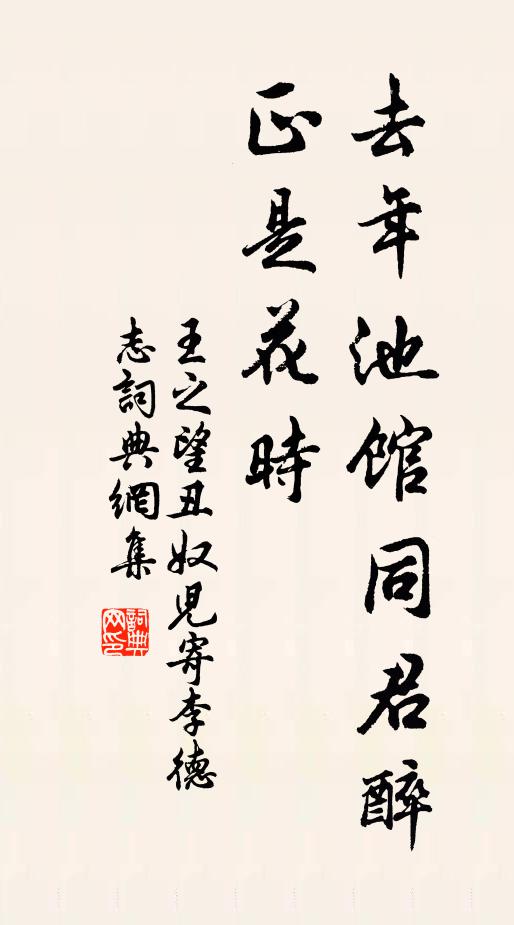 去年池館同君醉
正是花時
王之望丑奴兒寄李德
志詞典網集
詞典
网印